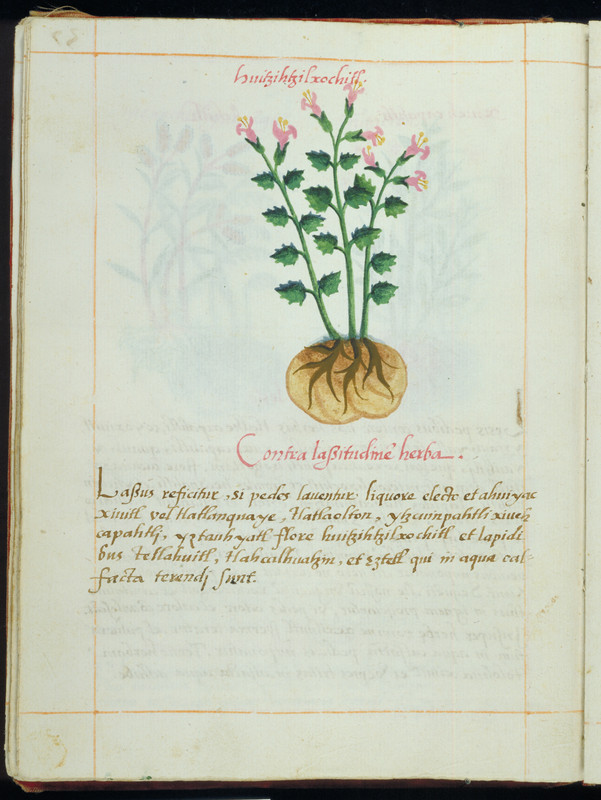 huitzihtzilxochitl.
Contra laßitudinē herba.
Laßus reficitur, si pedes laventur liquore electo et ahuiyac
xiuitl vel tlatlanquaye, tlatlaolton, ytzcuinpahtli xiuch
capahtli, yztauhyatl flore huitzihtzilxochitl et lapidi
bus tetlahuitl, tlahcalhuatzin, et eztetl qui in aqua cal-
facta terendi sunt.